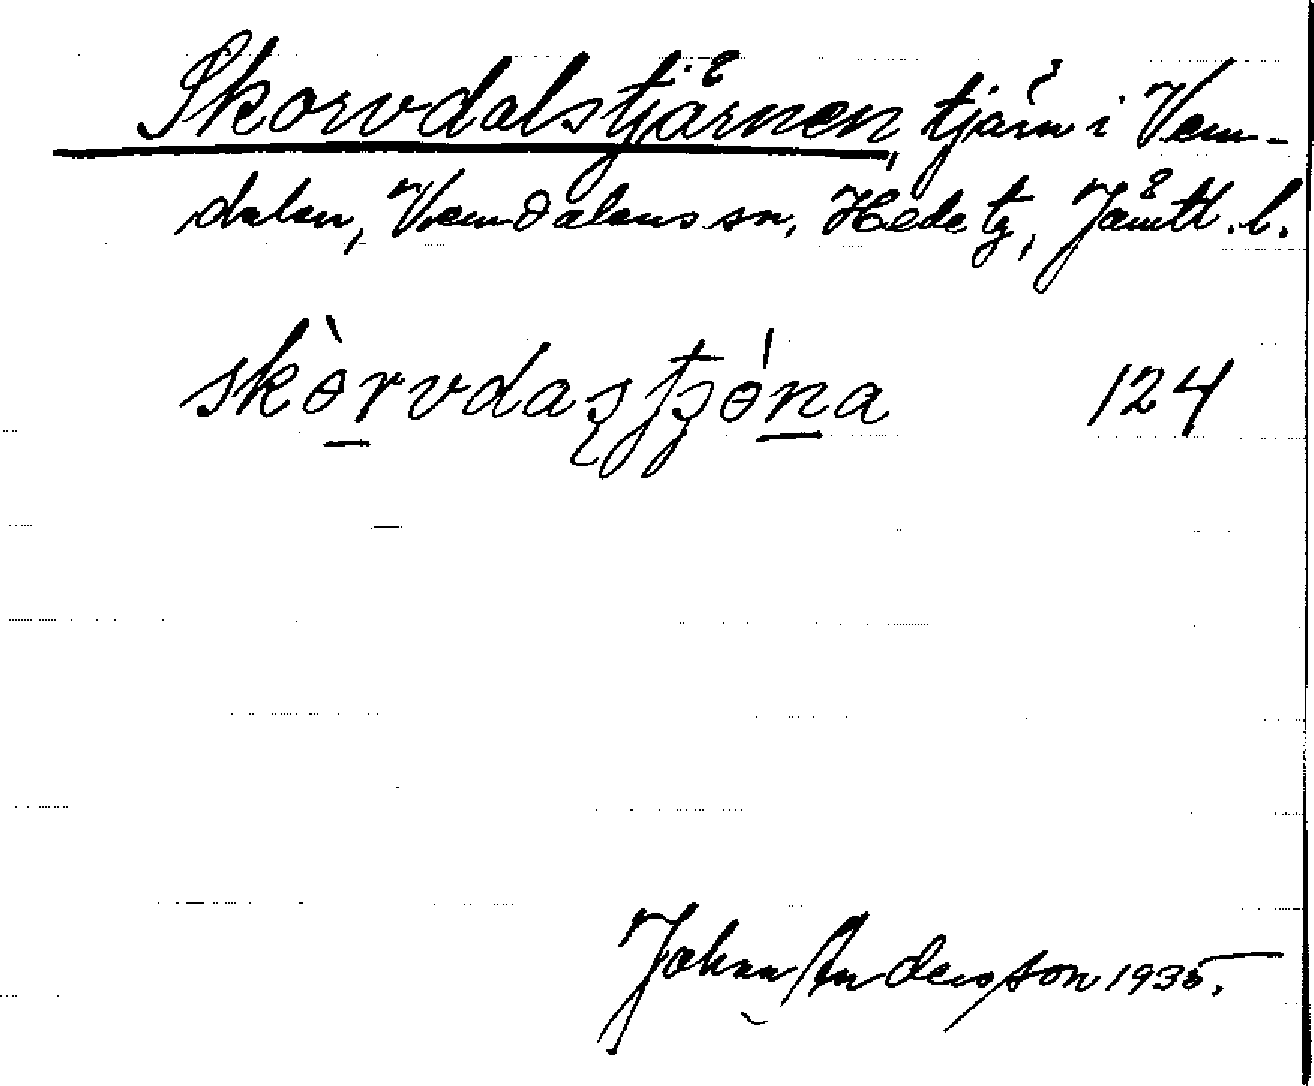 Skorvdalstjärnen, tjärn i Vem-
dalen, Vemdalens sn, Hede tg, Jämtl. l.
124
Johan Andersson 1935.